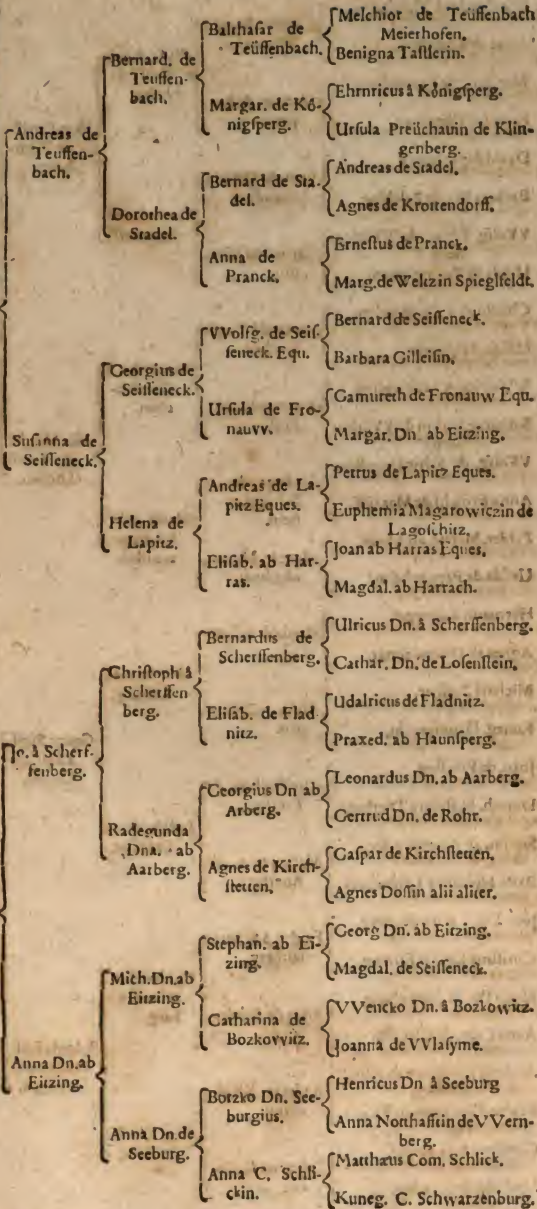 Andreas de
Teuffen-
bach.
Susanna de
Seisseneck.
Jo. à Scherf-
fenberg.
Anna Dn. ab
Eitzing.
Bernard. de
Teuffen-
bach.
Dorothea de
Stadel.
Georgius de
Seisseneck.
Helena de
Lapitz.
Christoph à
Scherffen
berg.
Radegunda
Dna. ab
Aarberg.
Mich. Dn. ab
Eitzing.
Anna Dn. de
Seeburg.
Balthasar de
Teüffenbach.
Margar. de Kö-
nigsperg.
Bernard de Sta-
del.
Anna de
Pranck.
VVolfg. de Seis-
seneck. Equ.
Ursula de Fro-
nauvv.
Andreas de La-
pitz Eques.
Elisab. ab Har-
ras.
Bernardus de
Scherffenberg.
Elisab. de Flad
nitz.
Georgius Dn ab
Arberg.
Agnes de Kirch-
stetten.
Stephan. ab Ei-
zing.
Catharina de
Bozkovvitz.
Botzko Dn. See-
burgius.
Anna C. Schli-
ckin.
Melchior de Teüffenbach
Meierhofen.
Benigna Tastlerin.
Ehrnricus à Königsperg.
Ursula Preüchauin de Klin-
genberg.
Andreas de Stadel.
Agnes de Krottendorff.
Ernestus de Pranck.
Marg. de Weltz in Spieglfeldt.
Bernard de Seisseneck.
Barbara Gilleisin.
Gamureth de Fronauw Equ.
Margar. Dn. ab Eitzing.
Petrus de Lapitz Eques.
Euphemia Magarowiczin de
Lagoschitz.
Joan ab Harras Eques.
Magdal. ab Harrach.
Ulricus Dn. à Scherffenberg.
Cathar. Dn. de Losenstein.
Udalricus de Fladnitz.
Praxed. ab Haunsperg.
Leonardus Dn. ab Aarberg.
Gertrud Dn. de Rohr.
Caspar de Kirchstetten.
Agnes Dossin alii aliter.
Georg Dn. ab Eitzing.
Magdal. de Seisseneck.
VVencko Dn. à Bozkowitz.
Joanna de VVlasyme.
Henricus Dn à Seeburg
Anna Notthafftin de VVern-
berg.
Matthæus Com. Schlick.
Kuneg. C. Schwarzenburg.